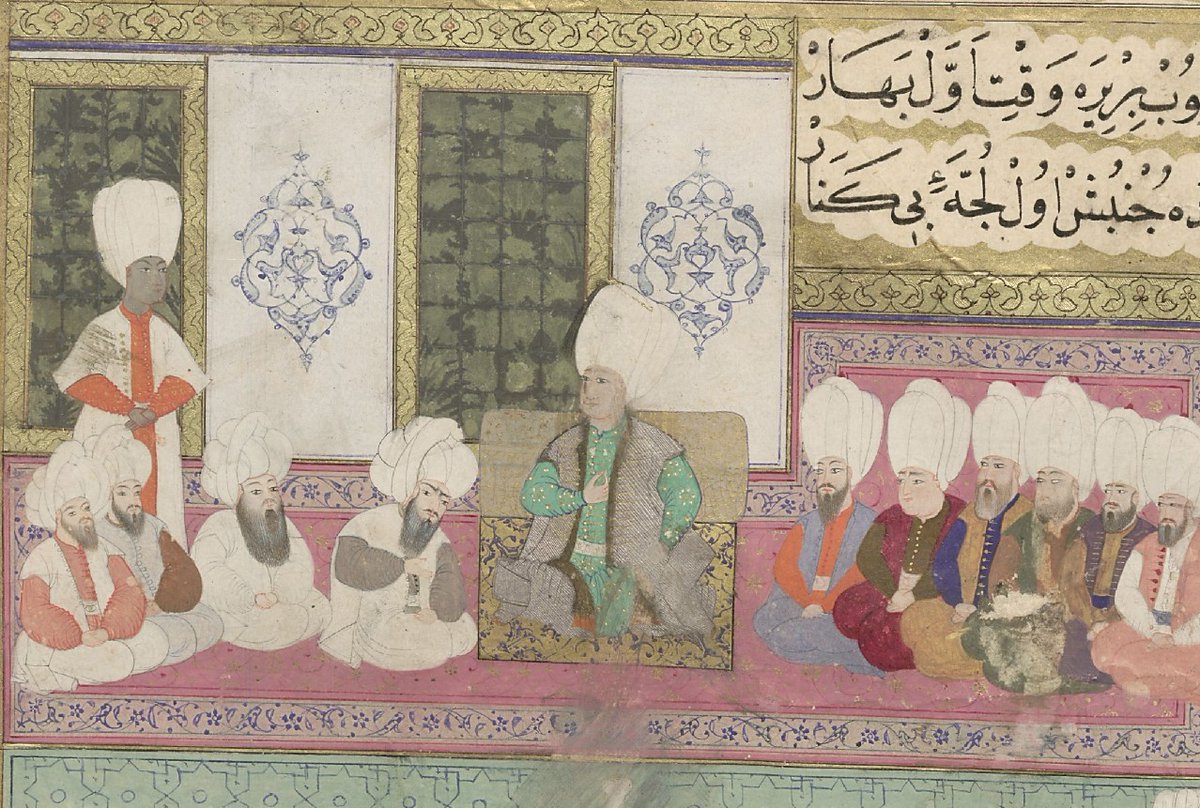 وُبْ بِرْ يِرَه وَقْتِ اَوَّلْ بَهَارْ
ده جُنْبُشْ اوُلْ لُجَّهٔ بى كَنَارْ